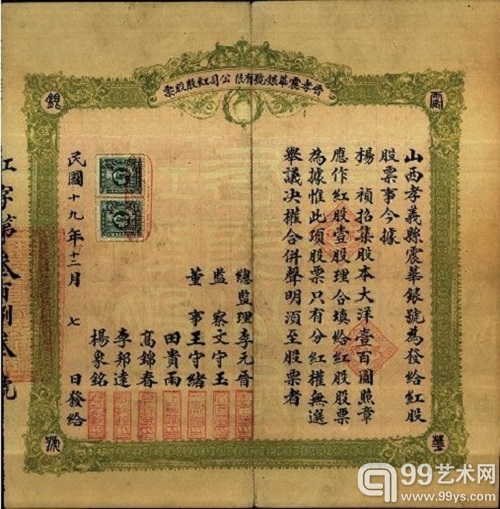 晉孝震華銀號有限公司紅股股票
震
華
銀
號
山西孝義縣震華銀號為發給紅股
股票事今據
楊 禎招集股本大洋壹百圓照章
應作紅股壹股理合填給紅股股票
為據惟此項股票只有分紅權無選
舉議決權合併聲明須至股票者
總監理李元晉
監察文守玉
董事王守緒
田貴雨
高錦春
李邦達
楊象銘
民國十九年十二月 七 日發給
紅字第叁百捌拾 號
99艺术网
www.99ys.com